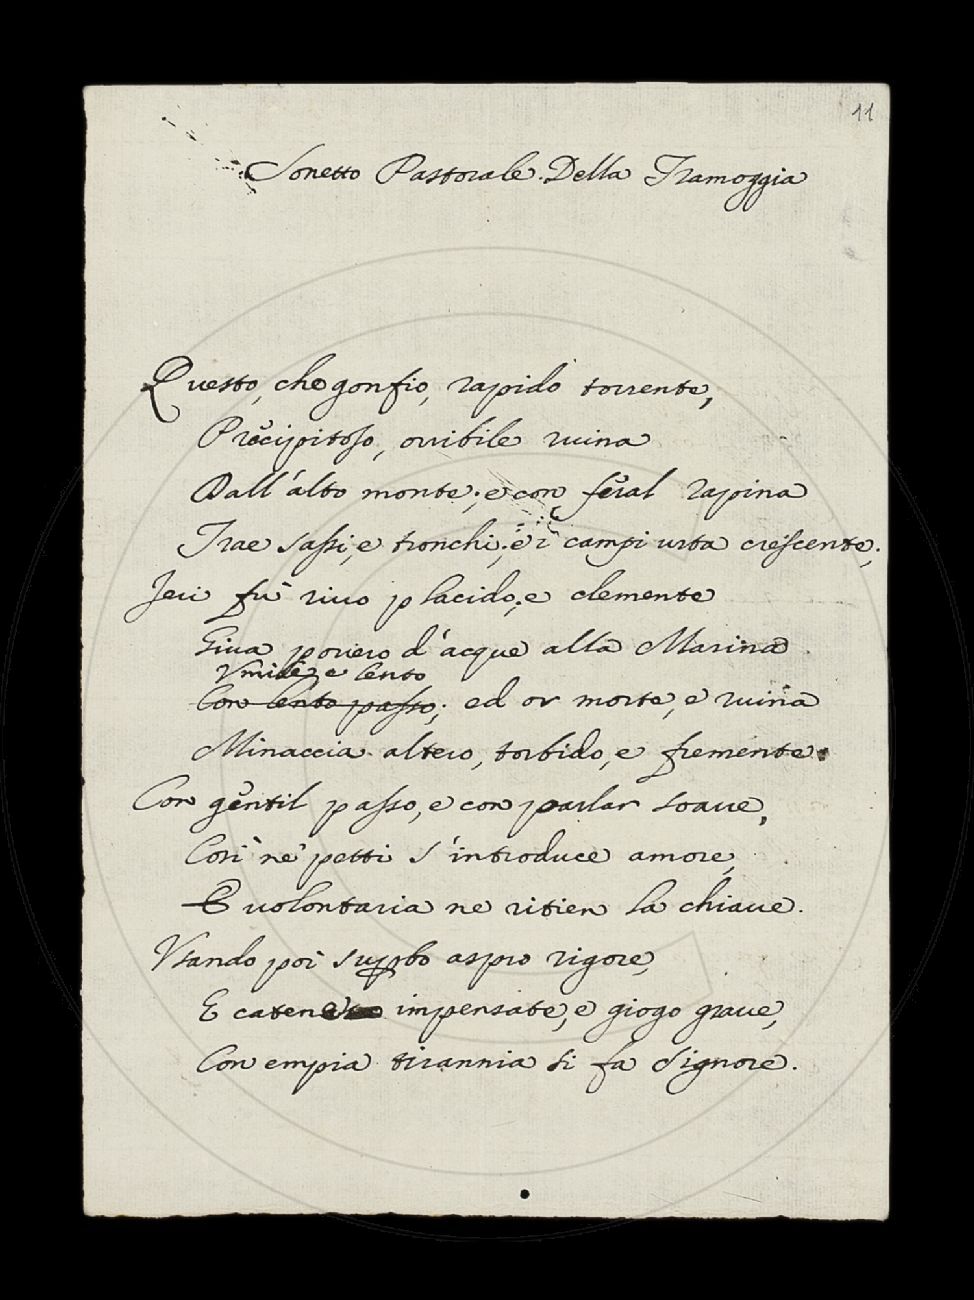 11
Sonetto Pastorale. Della Tramoggia
Questo, che gonfio, rapido torrente,
Precipitoso, orribile ruina
Dall'alto monte; e con feral rapina
Trae sassi, e tronchi, e i campi urta crescente;
Jeri fù rivo placido, e clemente
Giva povero d'acque alla Marina
Umile, e lento
Con lento passo; ed or morte, e ruina
Minaccia altero, torbido, e fremente.
Con gentil passo, e con parlar soave,
Così ne' petti s'introduce amore,
E volontaria ne ritien la chiave.
Usando poi superbo aspro rigore,
E catene impensate, e giogo grave,
Con empia tirannia si fa Signore.